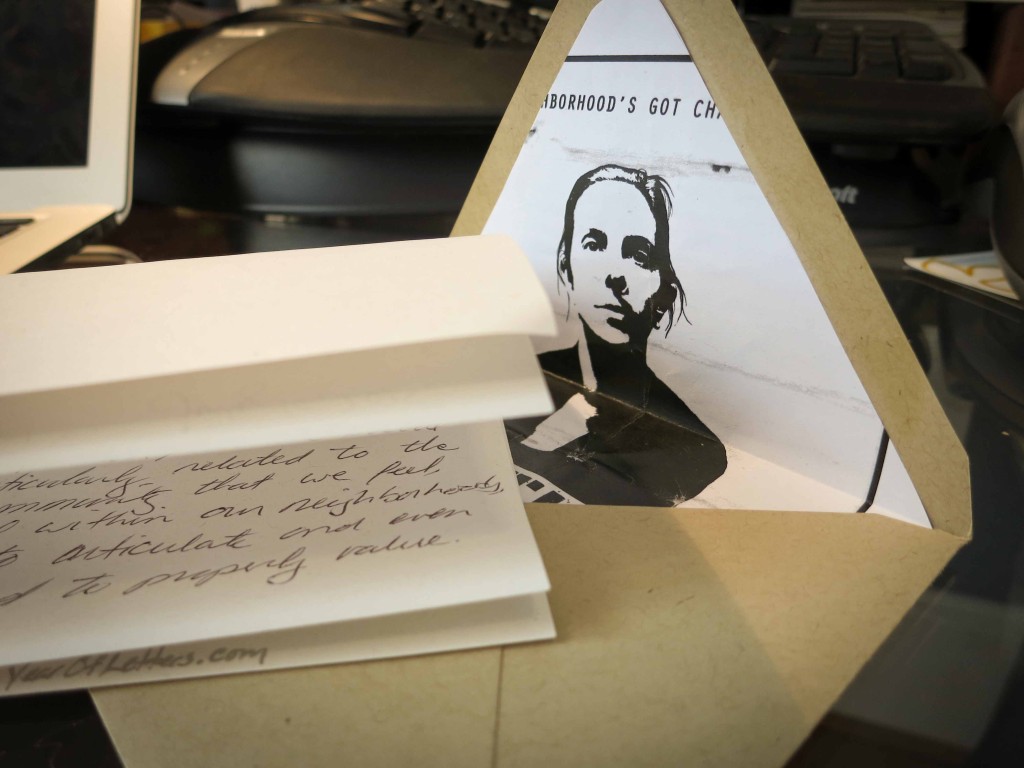 HBORHOOD'S GOT CHA
oft
ticularly related to the
mmunity that we feel
within our neighborhoods,
to articulate and even
d to properly value.
YearOfLetters.com